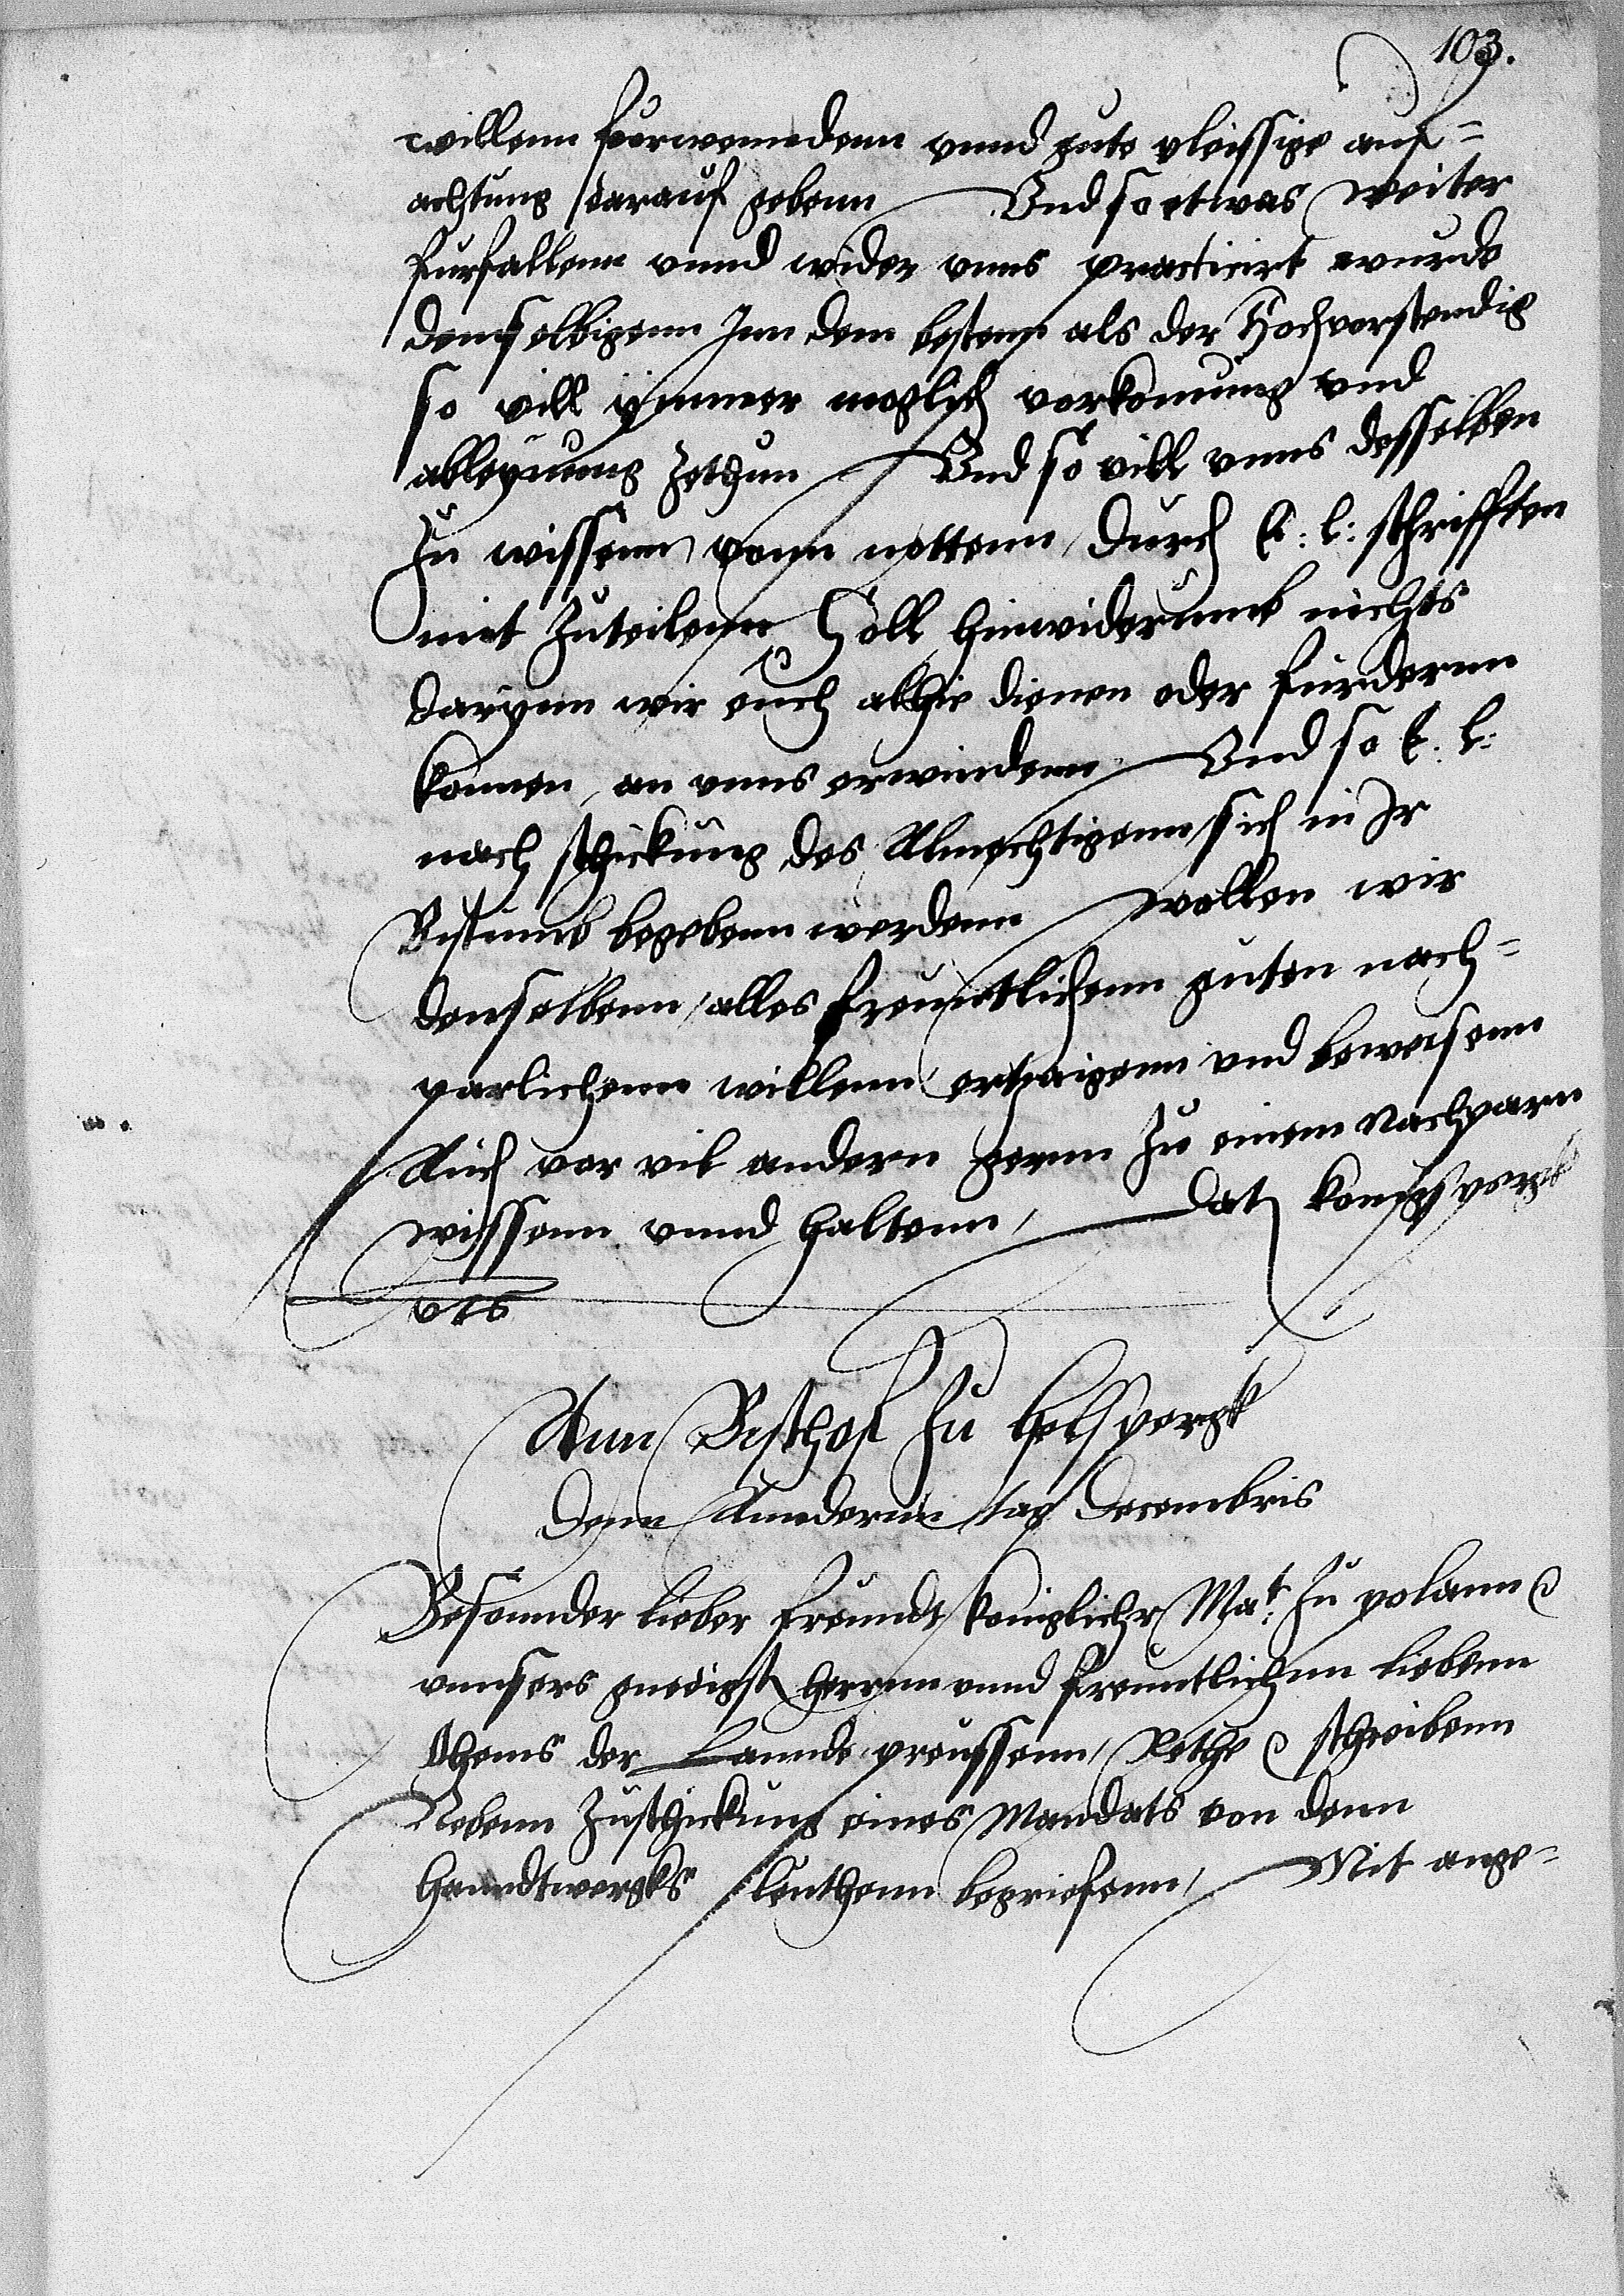 103.
willenn furwenndenn vnnd gute vleissige auf-
achtung darauf gebenn Vnd so etwas weiter
furfallenn vnnd wider vnns practicirt wurde
demselbigenn Inn dem bestenn als der Hochverstendig
so vill ymmer moglich vorkomung vnd
ableynung zethun Vnd so vill vnns desselben
Zu wissenn vonn nottenn, durch E: l: schrifften
mit Zuteilenn, Soll hinwiderumb nichts
darynn wir euch alhie dienen oder furdernn
konnen, an vnns erwindenn Vnd so E: l:
nach schickung des Almechtigenn sich in Ir
Bistumb begebenn werdenn wollen wir
denselbenn alles freuntlichenn guten nach-
parlichenn willenn ertzaigenn vnd beweisenn
Auch vor vil andern gernn Zu einem nachparn
wissenn vnnd haltenn, Dat konigspergk
vts
Ann Bischof Zu helspergk
Denn Anndernn tag Decembris
Besonnder lieber freundt koniglichr Mat: Zu polann
vnnsers gnedigst herrnn vnnd freuntlichenn liebenn
Ohems der Lannde preussenn, Rethe schreibenn
Nebenn Zuschickung eines Mandats von denn
hanndtwergks leuthenn begriefenn, Mit ange-